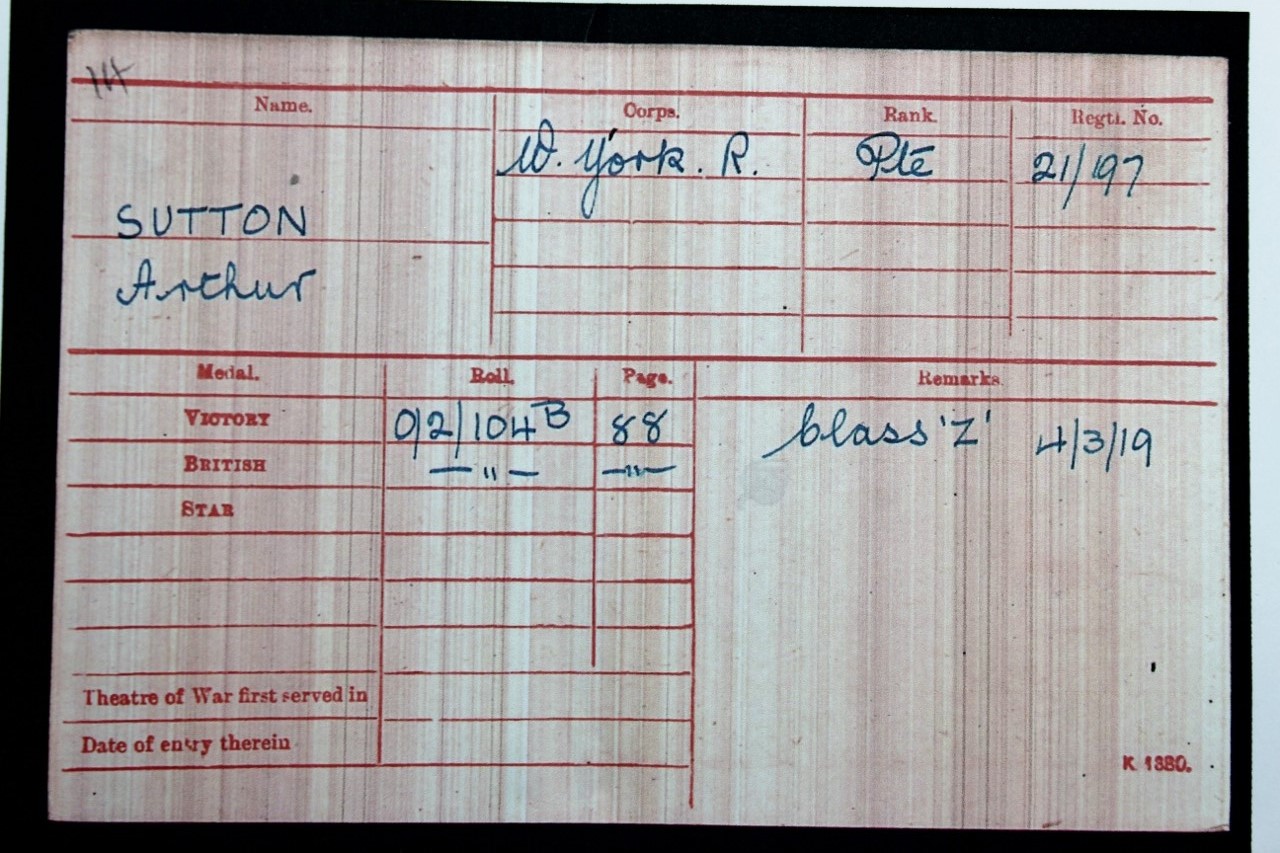 14
Name. Corps. Rank. Regtl. No.
W. York. R. Pte 21/197
SUTTON
Arthur
Medal. Roll. Page. Remarks.
VICTORY O/2/104B 88 Class 'Z' 4/3/19
BRITISH — " — — " —
STAR
Theatre of War first served in
Date of entry therein
K 1380.